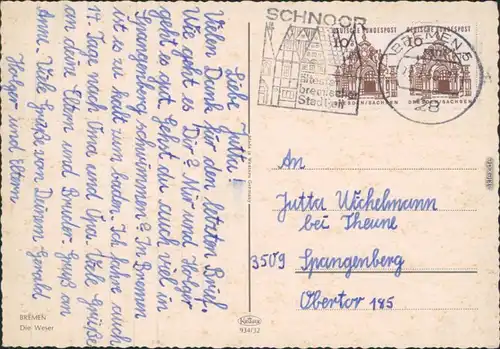 Liebe Jutta!
Vielen Dank für den letzten Brief.
Wie geht es Dir? Mir und Holger
geht es gut. Gehst du auch viel in
Spangenberg schwimmen? In Bremen
ist es zu kalt zum baden. Ich fahre auch
14 Tage nach Oma und Opa. Viele Grüße
an deine Eltern und Bruder. Gruß an
Anni. Viele Grüße von Deinem Gerald
Holger und Eltern
SCHNOOR
bremischer
Stadtteil
DEUTSCHE BUNDESPOST
10
DRESDEN/SACHSEN
DEUTSCHE BUNDESPOST
10
DRESDEN/SACHSEN
BREMEN 5
28
An
Jutta Üchelmann
bei Theune
3509 Spangenberg
Obertor 185
BREMEN
Die Weser
934/32